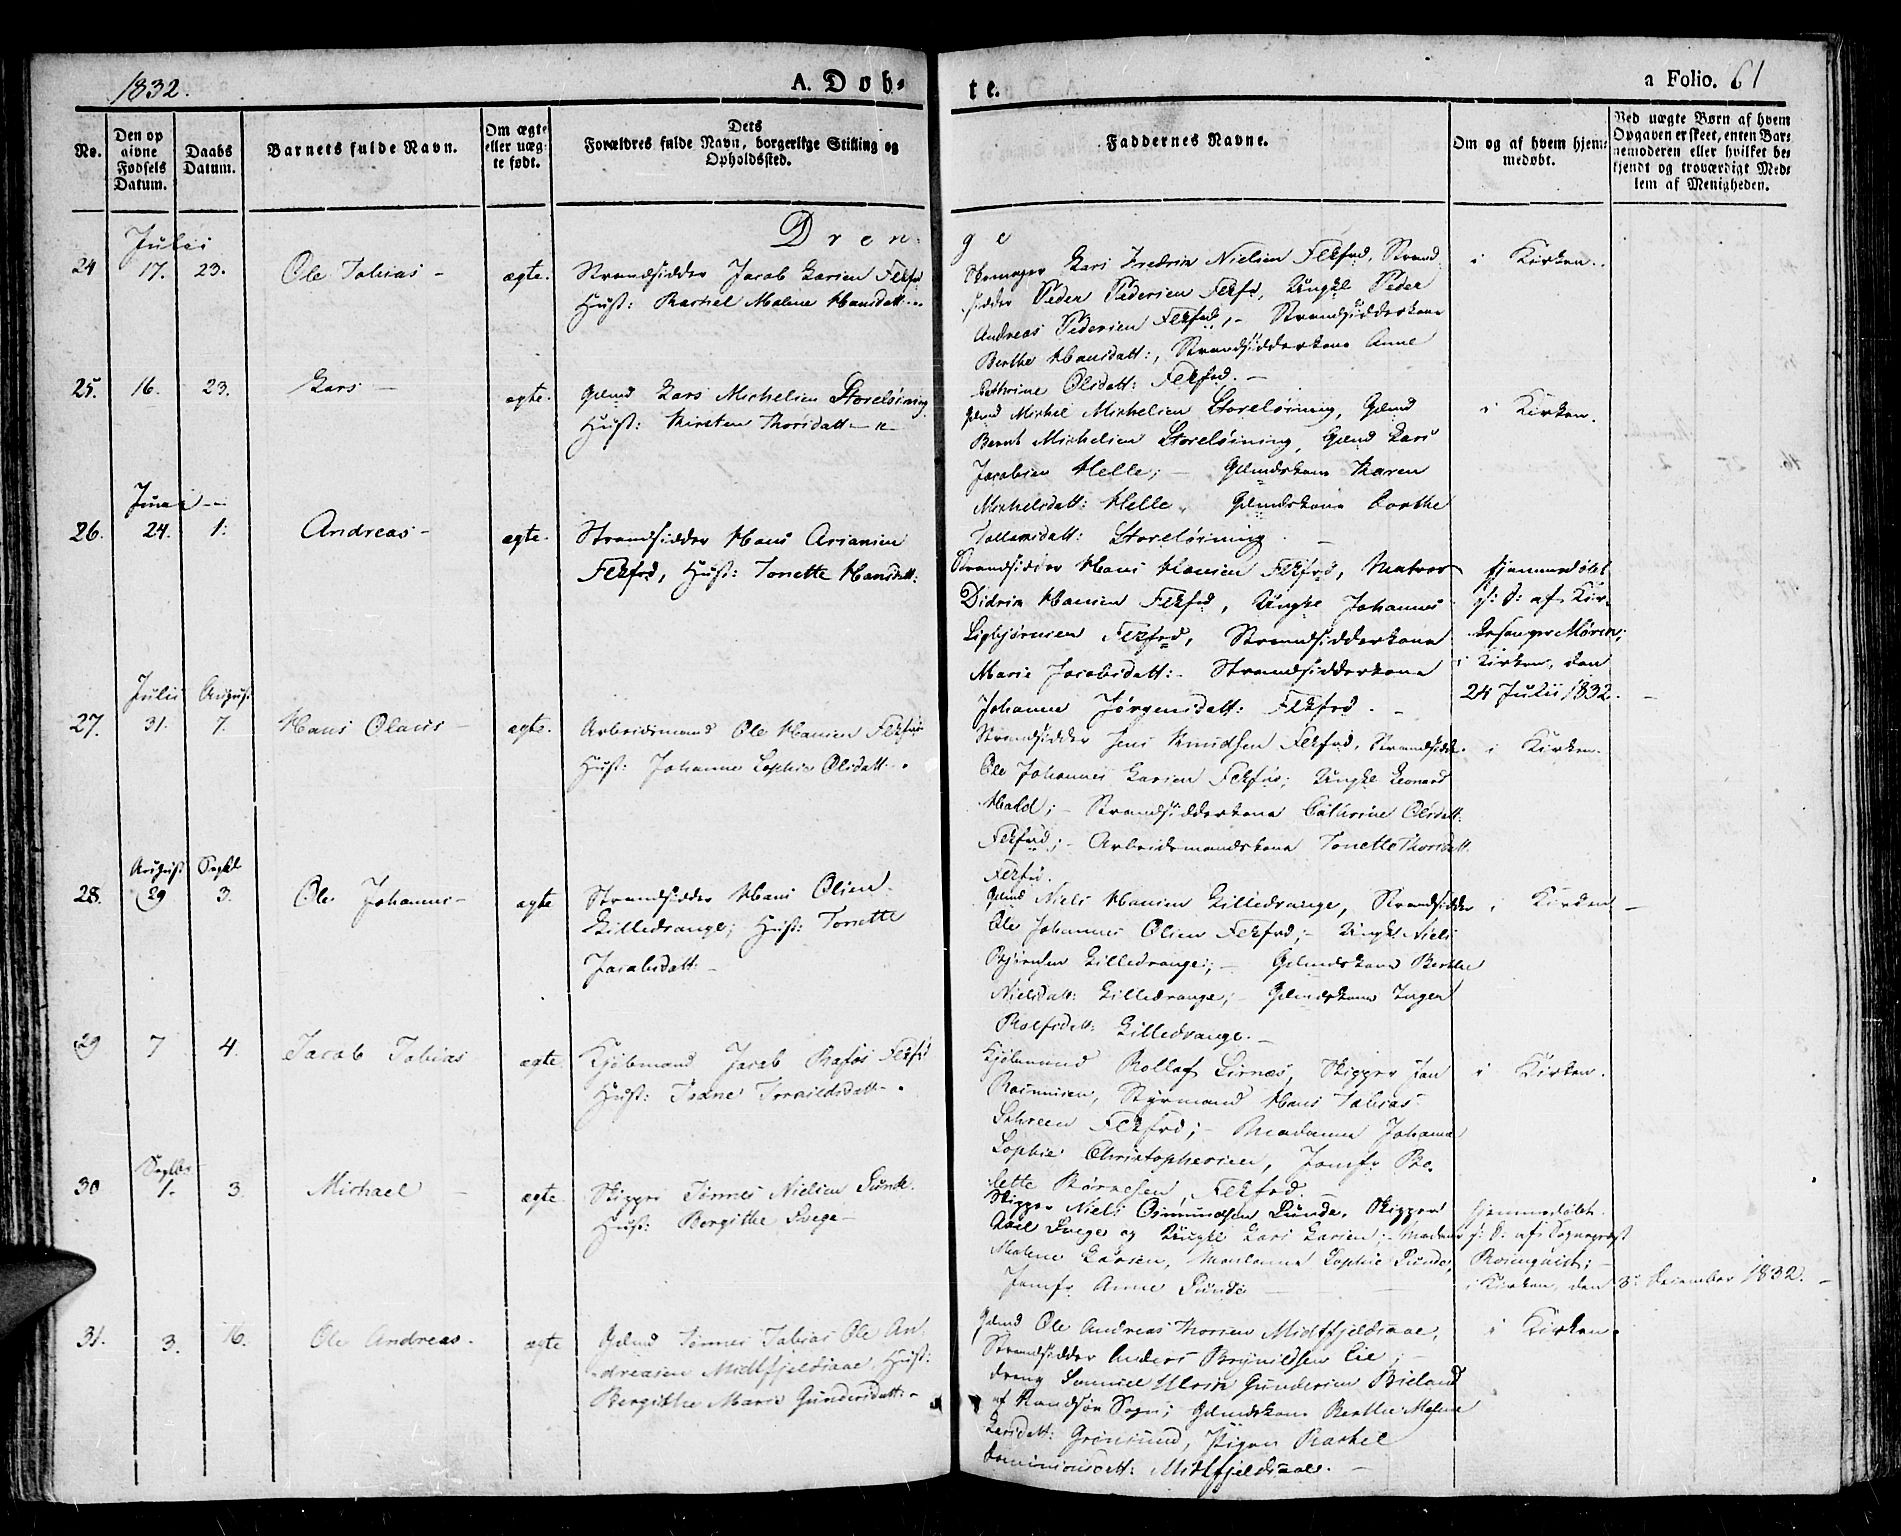 1832.
A. Døb=
te.
a Folio. 61
No.
Den op
givne
Fødsels
Datum.
Daabs
Datum.
Barnets fulde Navn.
Om ægte
eller uæg-
te født.
Dets
Forældres fulde Navn, borgerlige Stilling og
Opholdssted.
Faddernes Navne.
Om og af hvem hjem-
medøbt.
Ved uægte Børn af hvem
Opgaven er skeet, enten Bar-
nemoderen eller hvilket be-
kjendt og troværdigt Med-
lem af Menigheden.
Dren
ge
Julii
24 17. 23. Ole Tobias - ægte.
Strandsidder Jacob Larsen Flekfrd
Hust: Rachel Malene Hansdatt:
Lars Fredrik Nielsen Flekfrd, Strand
sidder Peder Pedersen Flekfd, Ungkl Peder
Andreas Pedersen Flekfrd; - Strandsidderkone
Berthe Hansdatt:, Strandsidderkone Anne
Cathrine Olsdatt: Flekfrd. -
i Kirken.
25. 16. 23. Lars - ægte.
Gmd Lars Michelsen Storeløining
Hust: Kirsten Thorsdatt -
Gmd Michel Michelsen Storeløining, Gmd
Bernt Michelsen Storeløining, Gmd Lars
Jacobsen Helle; - Gmdskone Karen
Michelsdatt: Helle, Gmdskone Berthe
Tollansdatt: Storeløining.
i Kirken.
Junii
26. 24. 1: Andreas - ægte.
Strandsidder Hans
Flekfrd, Hust: Tonette Hansdatt:
Strandsidder Hans Hansen Flekfrd, Matros
Didrik Hansen Flekfrd, Ungkl Johannes
Sigbjørnsen Flekfrd, Strandsidderkone
Marie Jacobsdatt: - Strandsidderkone
Johanne Jørgensdatt: Flekfrd. -
hjemmedøbt
af Kir-
kesanger Møren;
i Kirken, den
24 Julii 1832. -
Julii August
27. 31. 7. Hans Olaus - ægte.
Arbeidsmand Ole Hansen Flekfrd
Hust: Johanne Sophie Olsdatt:
Strandsidder Jens Knudsen Flekfrd, Strandsidd.
Ole Johannes Larsen Flekfrd; Ungkl Leonard
Hald; - Strandsidderkone Cathrine Olsdatt:
Flekfrd; - Arbeidsmandskone Tonette Thorsdatt:
Flekfd.
i Kirken.
August Septb
28. 29 3. Ole Johannes - ægte
Strandsidder Hans Olsen
Lilledrange; Hust: Tonette
Jacobsdatt: -
Gmd Niels Hansen Lilledrange, Strandsidder
Ole Johannes Olsen Flekfrd; - Ungkl Niels
Bjørnsen Lilledrange; - Gmdskone Berthe
Nielsdatt: Lilledrange; - Gmdskone Inger
Rolfsdatt: Lilledrange. -
i Kirken -
29 7 4. Jacob Tobias ægte.
Kjøbmand Jacob Flekfrd
Hust: Torvildsdatt -
Kjøbmand Rollaf Lirnæs, Skipper Jan
Rasmusen, Styrmand Hans Tobias
Flekfrd; - Madame Johanne
Sophie Christophersen, Jomfr Bo-
lette Flekfrd.
i Kirken.
Septbr
30 1. 3. Michael - ægte.
Skipper Tønnes Nielsen Sunde
Hust: Bergithe Svege -
Skipper Niels Osmundsen Sunde, Skipper
Axel Svege og Ungkl Lars Larsen; - Madame
Malene Larsen, Madame Sophie Sunde,
Jomfr Anne Sunde
hjemmedøbt
af Sognepræst
Rosenqvist; -
i Kirken, den 3. December 1832. -
31. 3. 16. Ole Andreas - ægte
Gmd Tønnes Tobias Ole An
dreasen Midtfjeldsaae, Hust:
Bergitha Marie Gundersdatt: -
Gmd Ole Andreas Thorsen Midtfjeldsaae,
Strandsidder Anders Brynildsen Lie; -
dreng Samuel Ulrik Gundersen Bieland
af Sogn; Gmdskone Berthe Malene
Larsdatt: Grønsund, Pigen Rachel
Midtfjeldsaae. -
i Kirken.